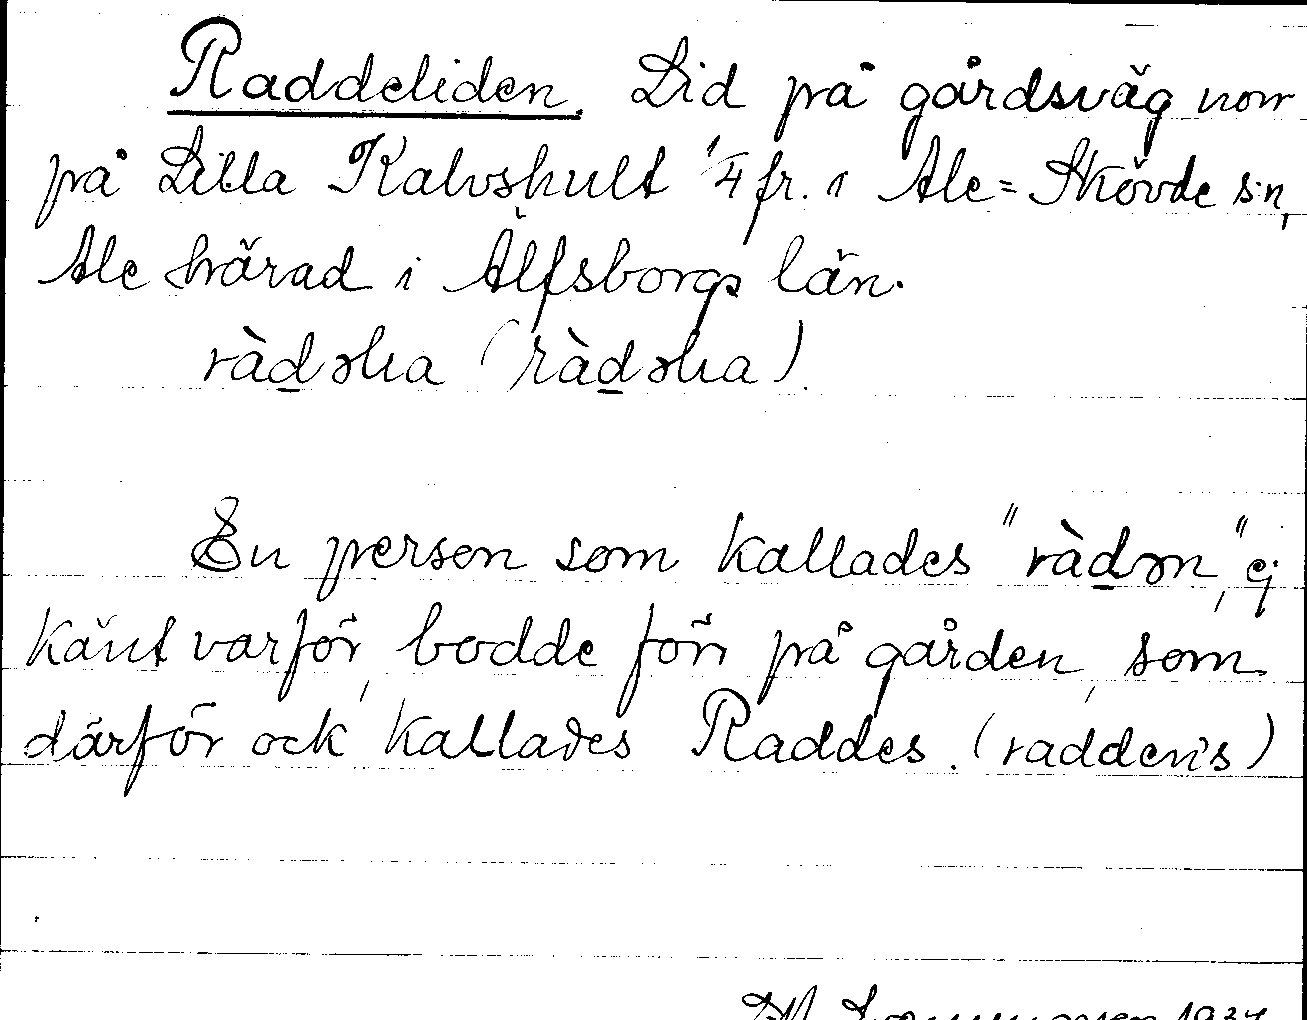 Raddeliden. Lid på gårdsväg norr
på Lilla Kalvshult 1/4 fr. i Ale=Skövde s:n,
Ale härad i Älfsborgs län.
En person som kallades "ràdən", ej
känt varför, bodde förr på gården, som
därför ock kallades Raddes. (radden's)
1937